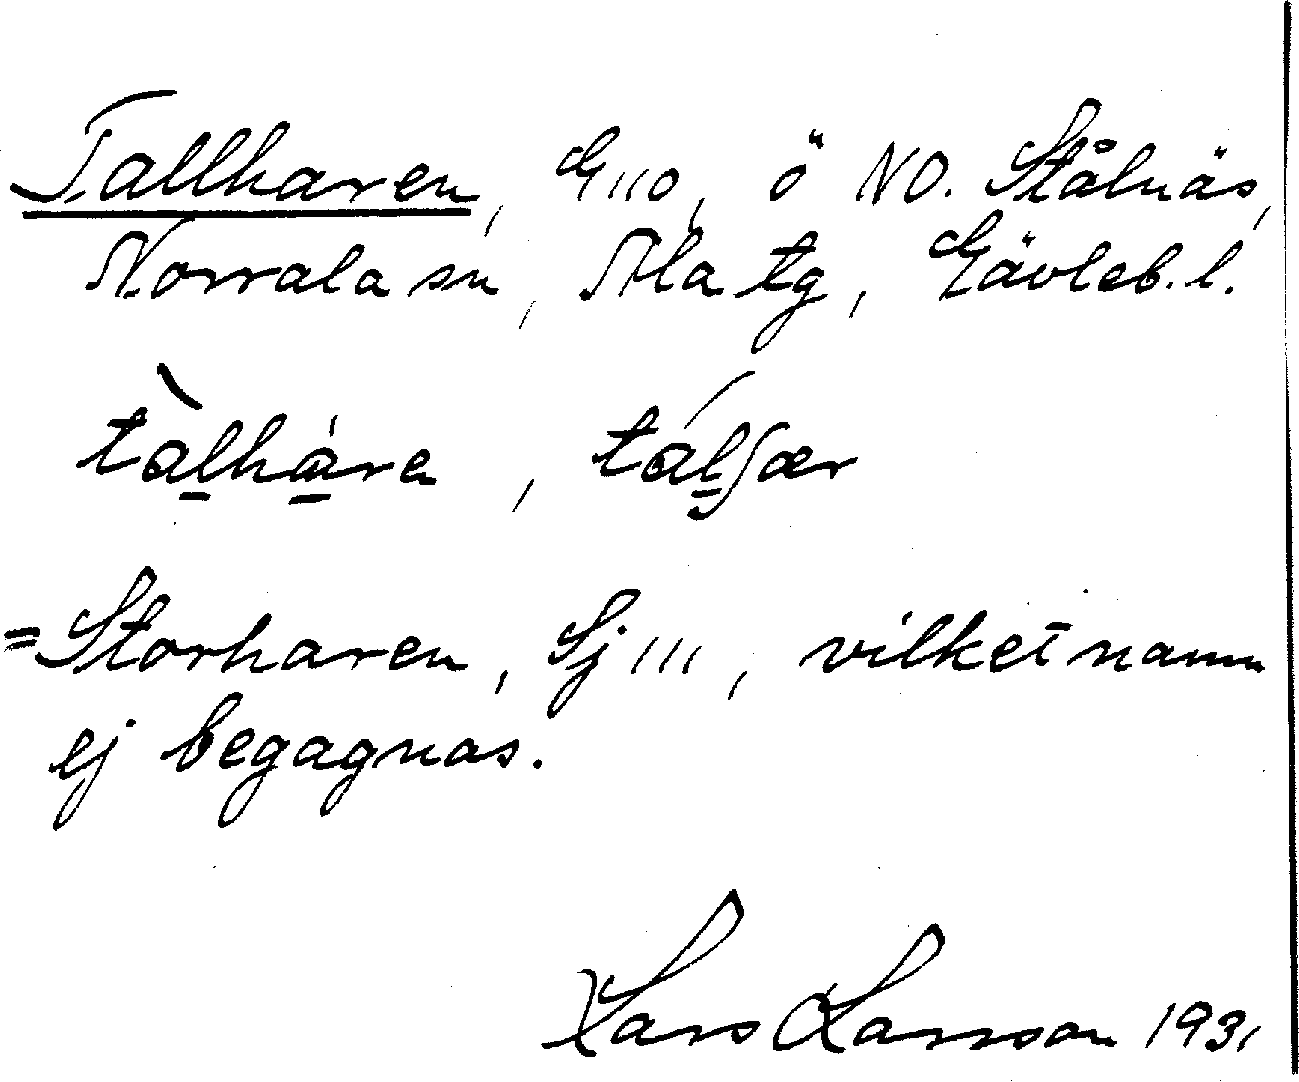 Tallharen, G110, ö NO. Stålnäs,
Norrala sn, Ala tg, Gävleb. l.
tàlhá̱re, tálʃær
= Storharen, Sj 111, vilket namn
ej begagnas.
Lars Larsson 1931